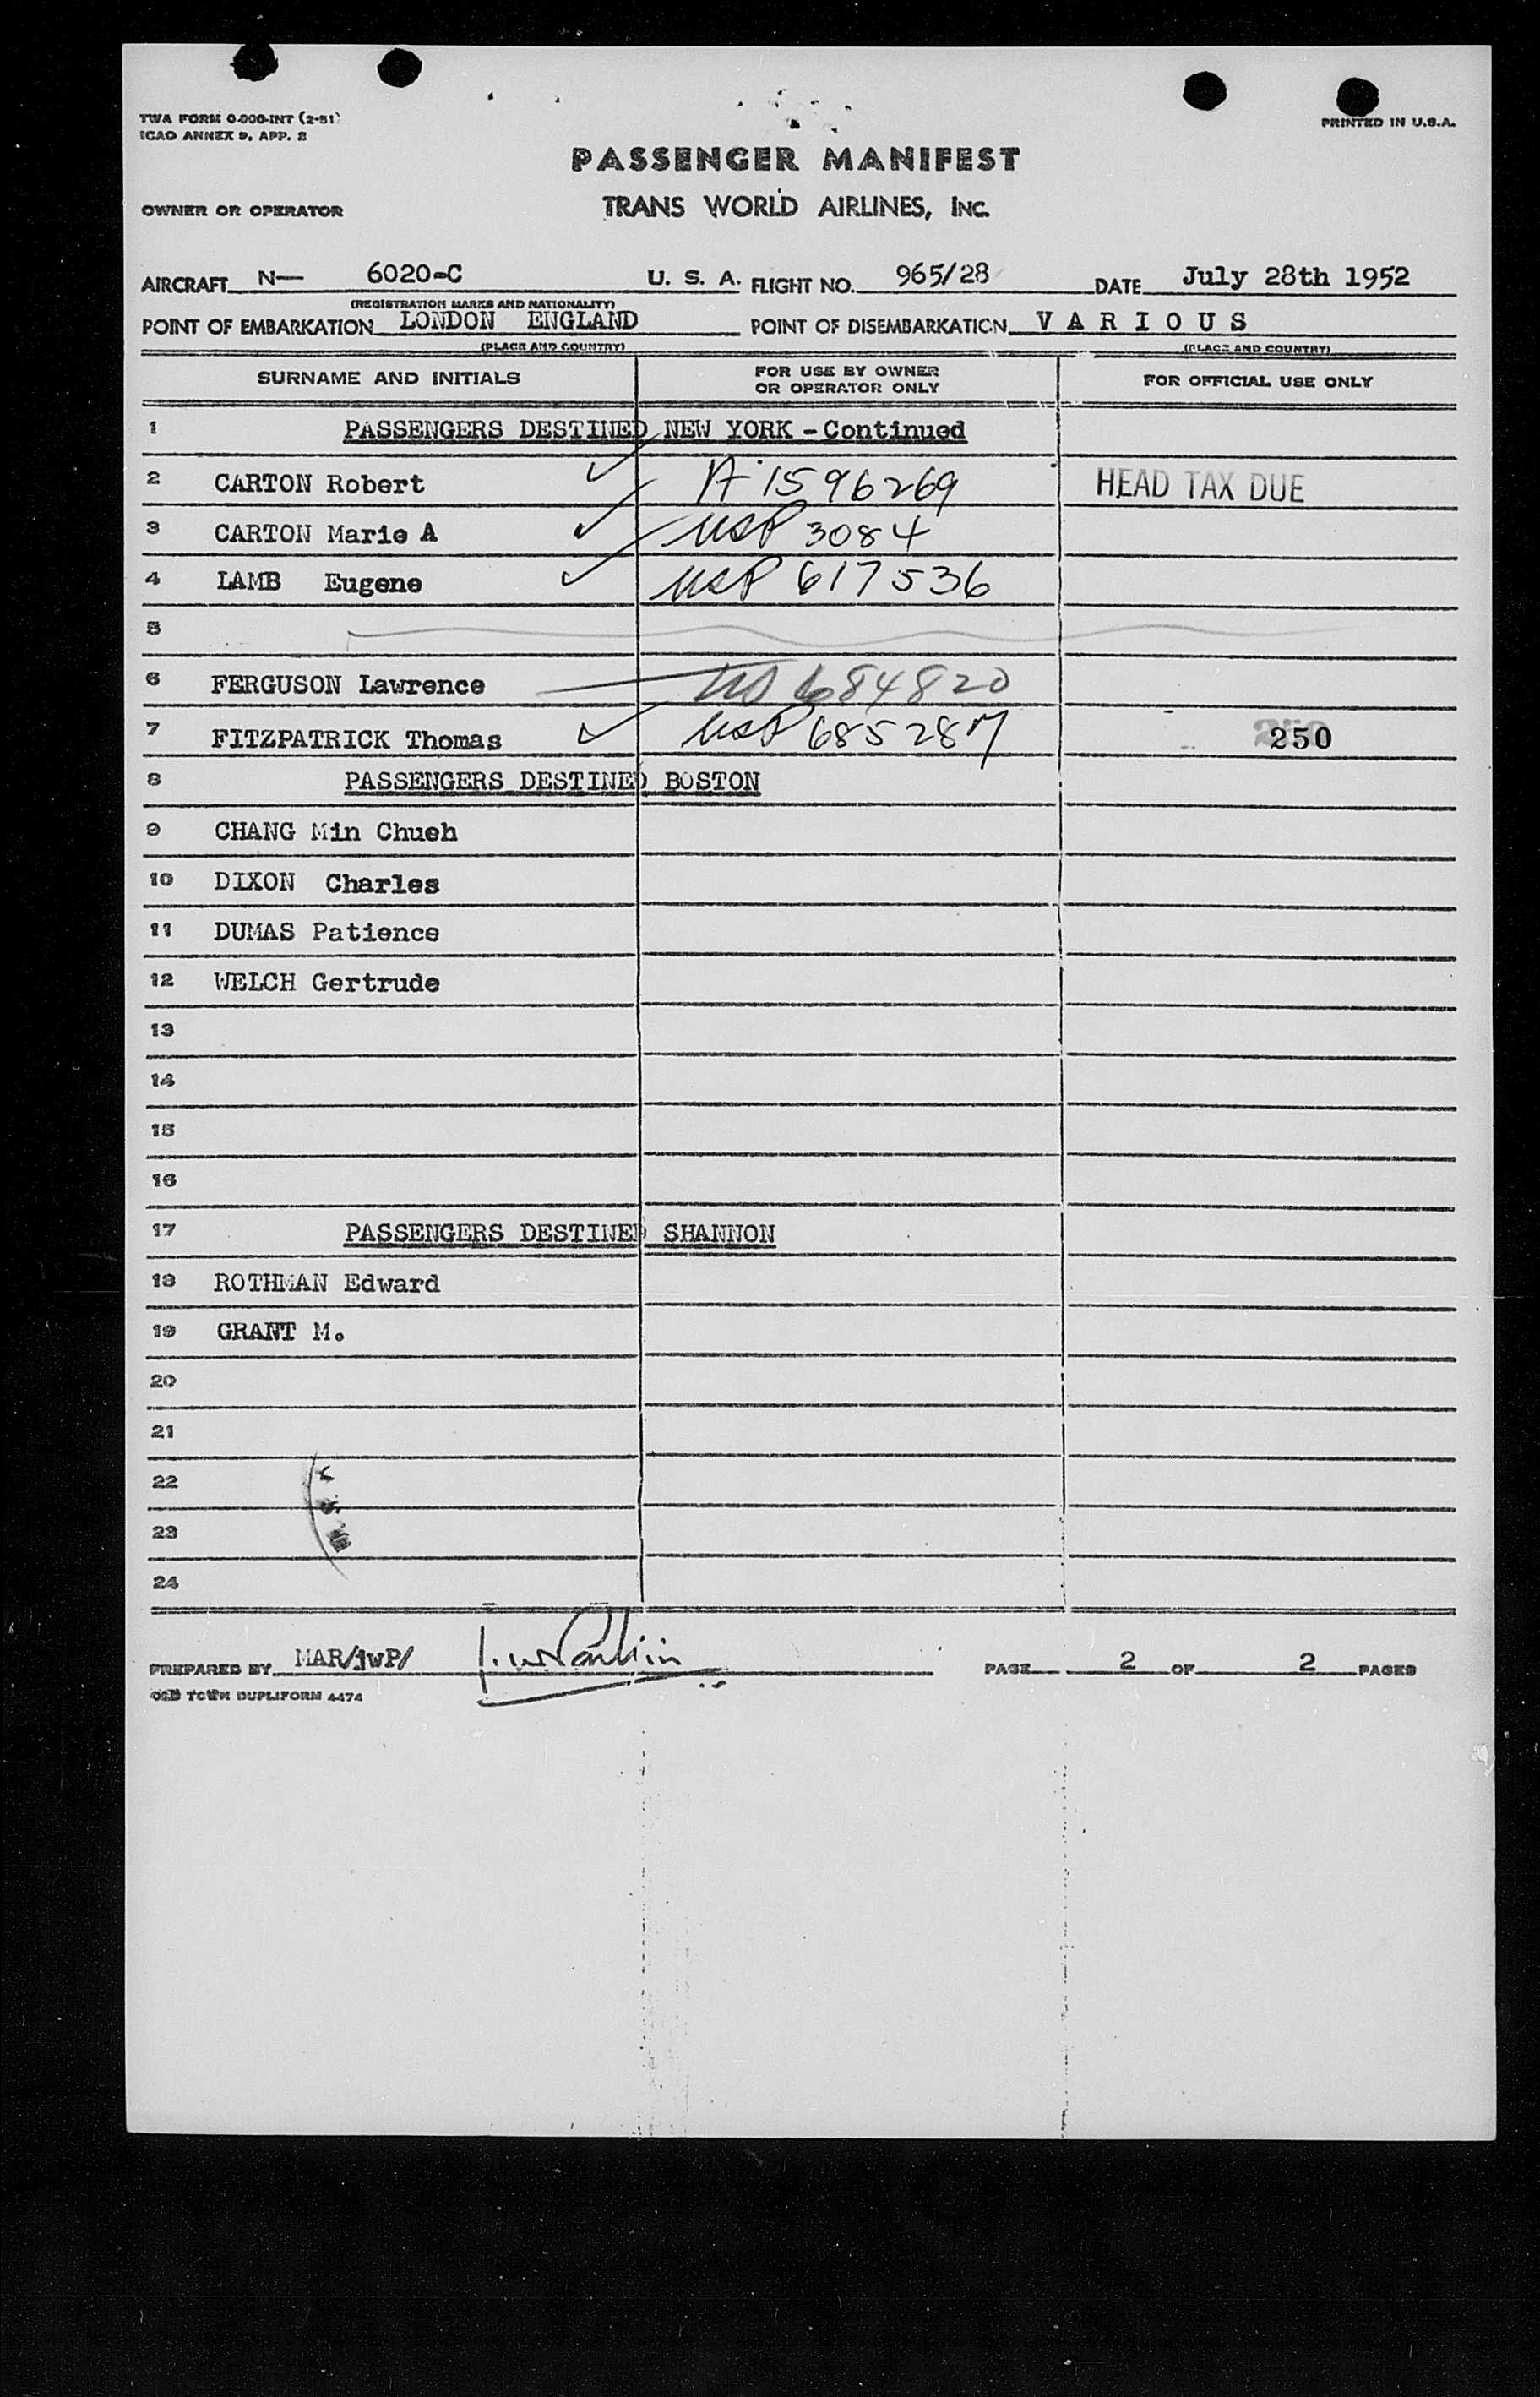 TWA FORM 0-000-INT (2-51)
ICAO ANNEX 9, APP. 2
PRINTED IN U.S.A.
PASSENGER MANIFEST
OWNER OR OPERATOR TRANS WORLD AIRLINES, INC.
AIRCRAFT N— 6020-C U. S. A. FLIGHT NO. 965/28 DATE July 28th 1952
(REGISTRATION MARKS AND NATIONALITY)
POINT OF EMBARKATION LONDON ENGLAND POINT OF DISEMBARKATION V A R I O U S
(PLACE AND COUNTRY) (PLACE AND COUNTRY)
SURNAME AND INITIALS FOR USE BY OWNER OR OPERATOR ONLY FOR OFFICIAL USE ONLY
1 PASSENGERS DESTINED NEW YORK - Continued
2 CARTON Robert A 1596269 HEAD TAX DUE
3 CARTON Marie A USP 3084
4 LAMB Eugene USP 617536
5
6 FERGUSON Lawrence 684820
7 FITZPATRICK Thomas USP 685287 250
8 PASSENGERS DESTINED BOSTON
9 CHANG Min Chueh
10 DIXON Charles
11 DUMAS Patience
12 WELCH Gertrude
13
14
15
16
17 PASSENGERS DESTINED SHANNON
18 ROTHMAN Edward
19 GRANT M.
20
21
22
23
24
PREPARED BY MAR/jwP/ PAGE 2 OF 2 PAGES
OLD TOWN DUPLIFORM 4474